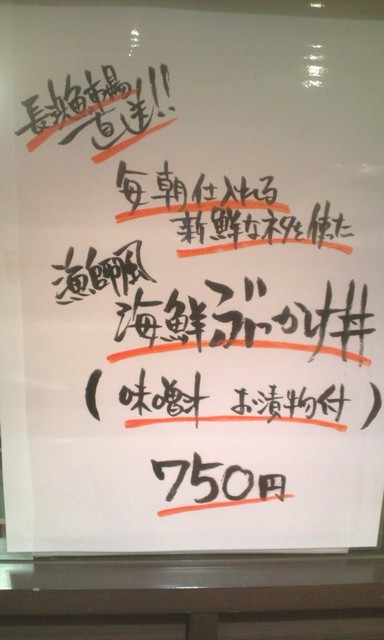 長浜魚市場
直送!!
毎朝仕入れる
新鮮なネタを使た
漁師風
海鮮ぶっかけ丼
(味噌汁 お漬物付)
750円